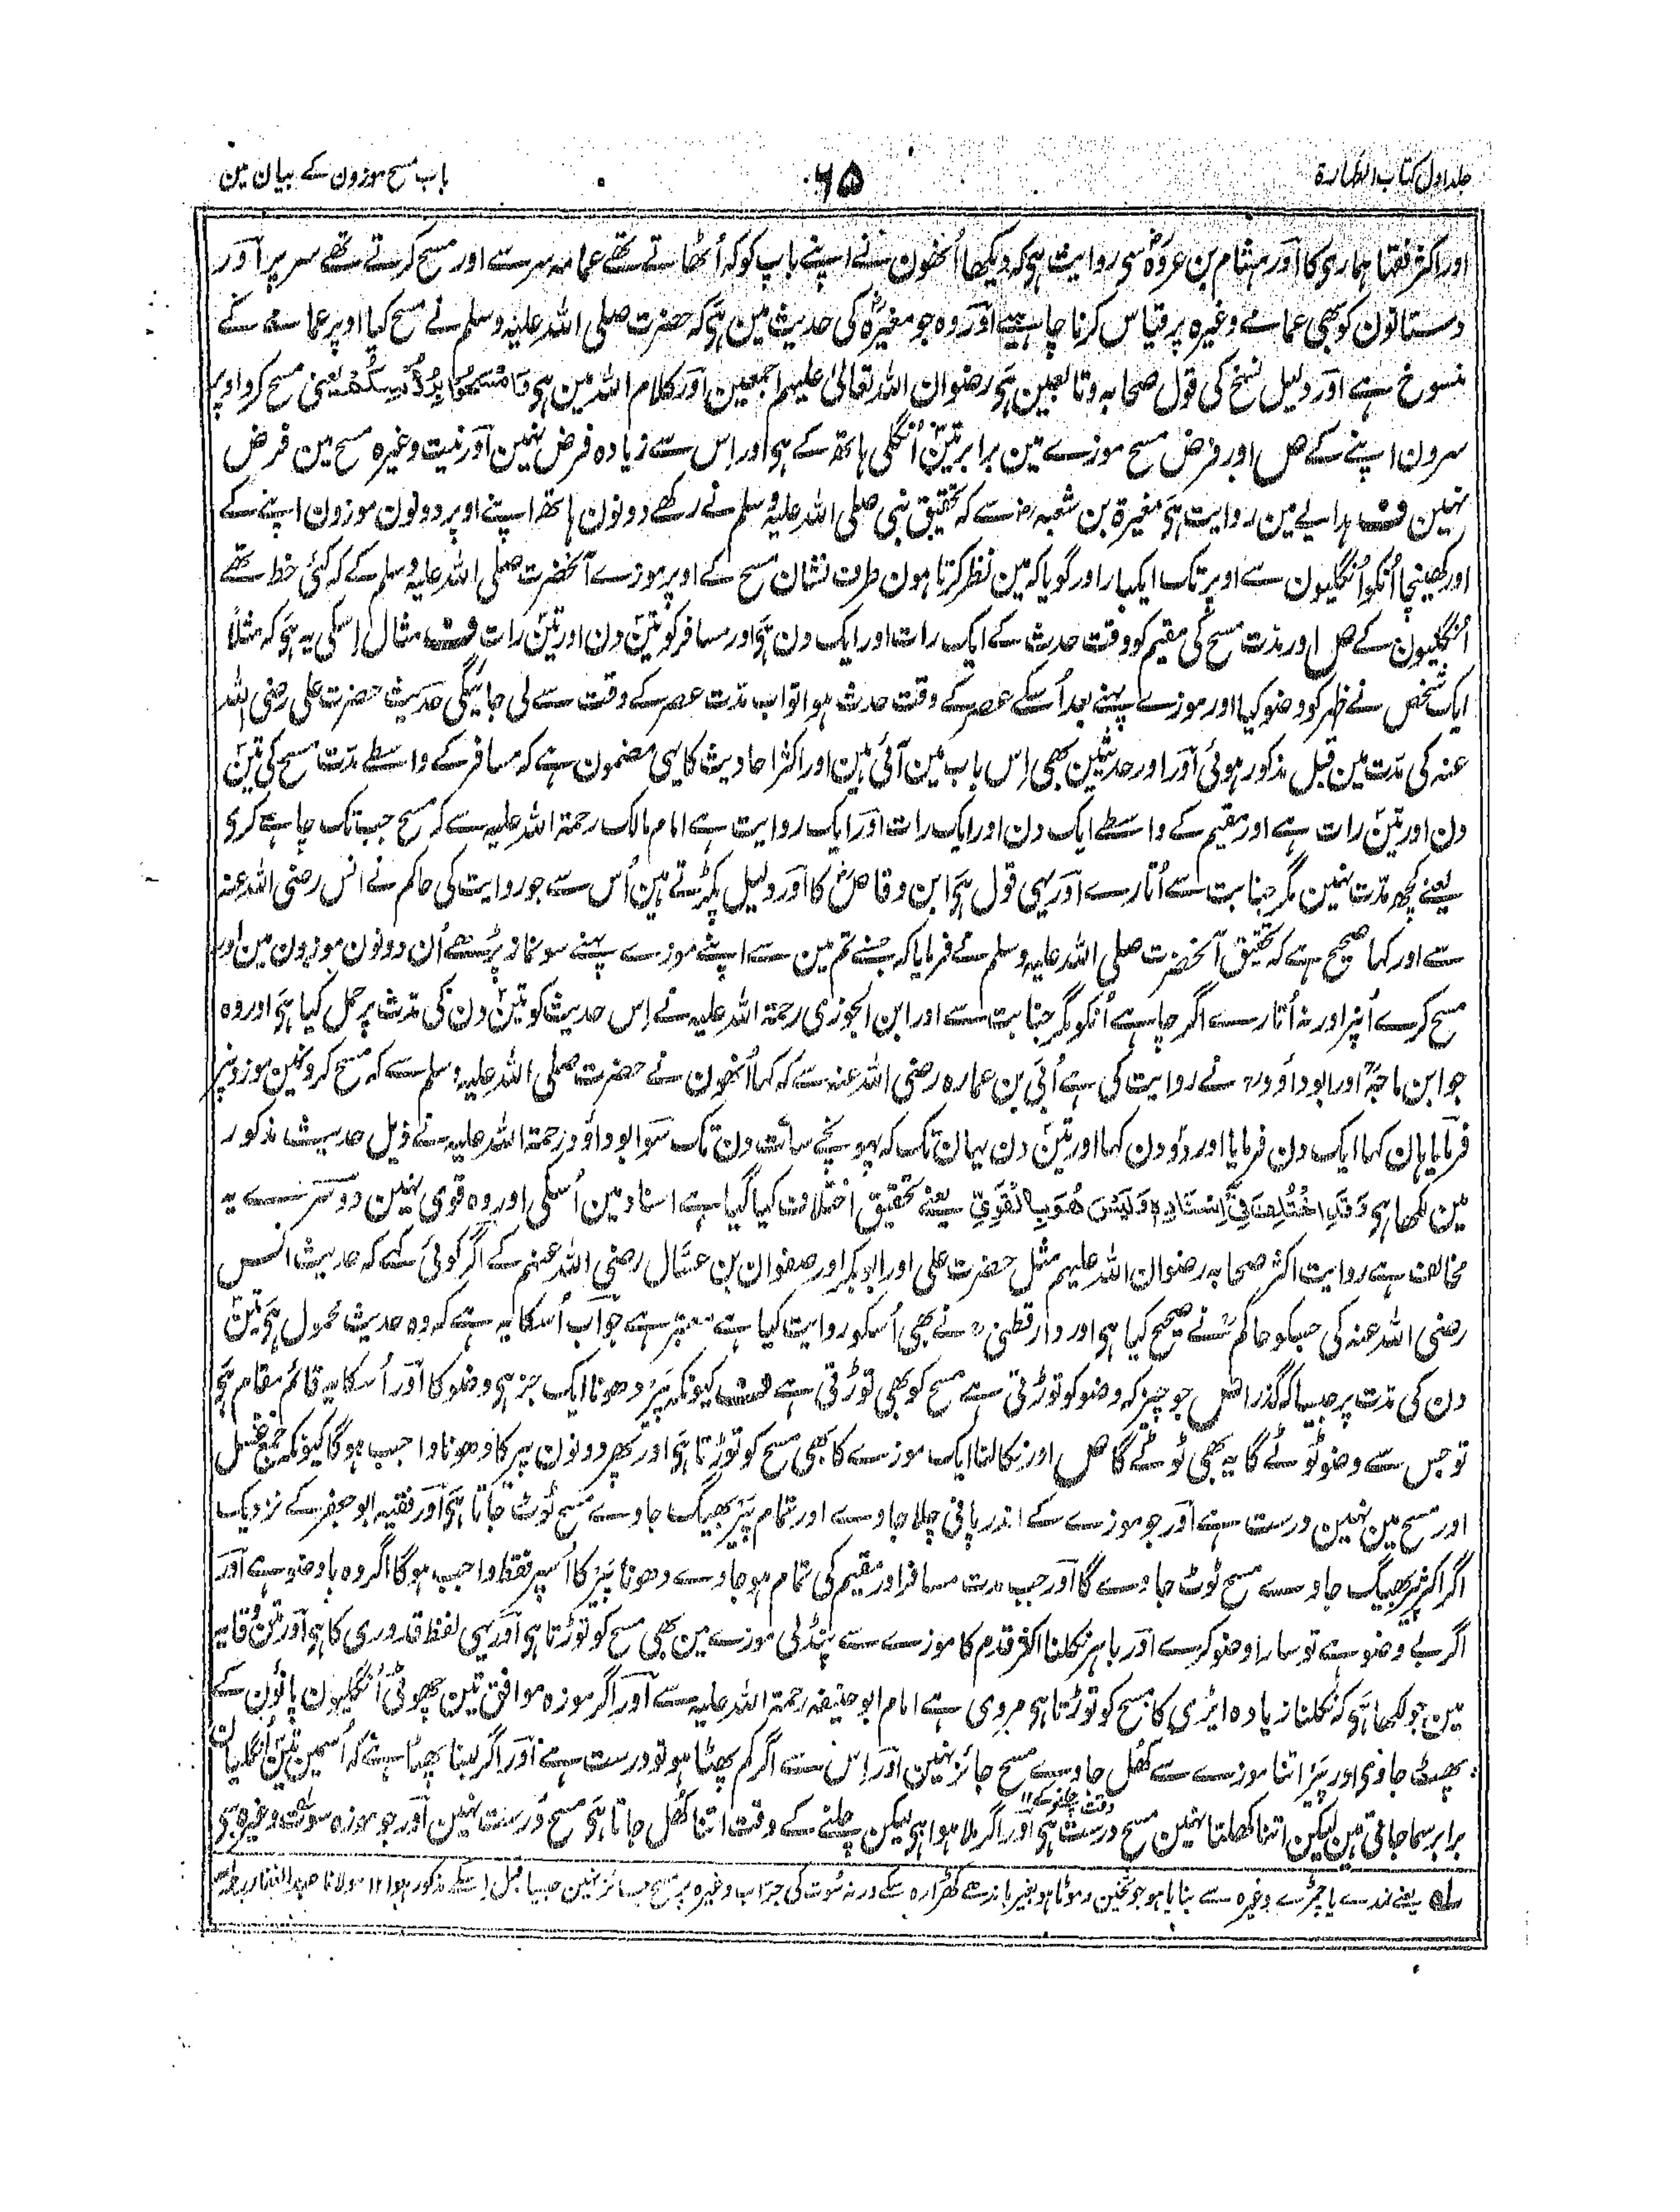 جلد اول کتاب الطہارۃ
۶۵
باب مسح موزون کے بیان مین
اور اکثر فقہا ہماری کا اور ہشام بن عروہؓ سی روایت ہی کہ دیکھا اُنھون نے اپنے باپ کو کہ اُٹھاتے تھے عمامہ سر سے اور مسح کرتے تھے سر پر اور
دستانون کو بھی عمامے وغیرہ پر قیاس کرنا چاہیے اور وہ جو مغیرہؓ کی حدیث مین ہی کہ حضرت صلی اللہ علیہ وسلم نے مسح کیا اوپر عمامے کے
منسوخ ہے اور دلیل نسخ کی قول صحابہ و تابعین ہی رضوان اللہ تعالیٰ علیہم اجمعین اور کلام اللہ مین ہی وَامْسَحُوْا بِرُءُوْسِكُمْ یعنی مسح کرو اوپر
سرون اپنے کے ص اور فرض مسح موزے مین برابر تین اُنگلی ہاتھ کے ہی اور اِس سے زیادہ فرض نہین اور نیت وغیرہ مسح مین فرض
نہین ف ہدایے مین روایت ہی مغیرۃ بن شعبہ رض سے کہ تحقیق نبی صلی اللہ علیہ وسلم نے رکھے دونون ہاتھ اپنے اوپر دونون موزون اپنے کے
اور کھینچا اُنکو اُنگلیون سے اوپر تک ایکبار اور گویا کہ مین نظر کرتا ہون طرف نشان مسح کے اوپر موزے آنحضرت صلی اللہ علیہ وسلم کے کہ کئی خط تھے
اُنگلیون کے ص اور مدت مسح کی مقیم کو وقت حدث کے ایک رات اور ایک دن ہی اور مسافر کو تین دن اور تین رات ف مثال اِسکی یہ ہی کہ مثلاً
ایک شخص نے ظہر کو وضو کیا اور موزے پہنے بعد اُسکے عصر کے وقت حدث ہوا تو اب مدت عصر کے وقت سے لی جائیگی حدیث حضرت علی رضی اللہ
عنہ کی مدت مین قبل مذکور ہوئی اور اور حدیثین بھی اِس باب مین آئی ہین اور اکثر احادیث کا یہی مضمون ہے کہ مسافر کے واسطے مدت مسح کی تین
دن اور تین رات ہے اور مقیم کے واسطے ایک دن اور ایک رات اور ایک روایت ہے امام مالک رحمۃ اللہ علیہ سے کہ مسح جب تک چاہے کری
یعنے کچھ مدت نہین مگر جنابت سے اُتارے اور یہی قول ہی ابن وقاصؓ کا اور دلیل پکڑتے ہین اُس سے جو روایت کی حاکم نے انس رضی اللہ عنہ
سے اور کہا صحیح ہے کہ تحقیق آنحضرت صلی اللہ علیہ وسلم نے فرمایا کہ جسنے تم مین سے اپنے موزے پہنے سو نماز پڑھے اُن دونون موزون مین اور
مسح کرے اُنپر اور نہ اُتارے اگر چاہے اُنکو مگر جنابت سے اور ابن الجوزی رحمۃ اللہ علیہ نے اِس حدیث کو تین دن کی مدت پر حمل کیا ہی اور وہ
جو ابن ماجہؒ اور ابو داؤد رح نے روایت کی ہے اُبَی بن عمارہ رضی اللہ عنہ سے کہ کہا اُنھون نے حضرت صلی اللہ علیہ وسلم سے کہ مسح کرون مین موزونپر
فرمایا ہان کہا ایک دن فرمایا اور دو دن کہا اور تین دن یہان تک کہ پہونچے سات دن تک سو ابو داؤد رحمۃ اللہ علیہ نے ذیل حدیث مذکور
مین لکھا ہی وَقَدِ اخْتُلِفَ فِيْ اِسْنَادِهٖ وَلَيْسَ هُوَ بِالْقَوِيِّ یعنے تحقیق اختلاف کیا گیا ہے اسناد مین اُسکی اور وہ قوی نہین دوسرے یہ
مخالف ہے روایت اکثر صحابہ رضوان اللہ علیہم مثل حضرت علی اور ابو بکر اور صفوان بن عسّال رضی اللہ عنہم کے اگر کوئی کہے کہ حدیث انس
رضی اللہ عنہ کی جسکو حاکمؒ نے صحیح کیا ہی اور دارقطنی رح نے بھی اُسکو روایت کیا ہے معتبر ہے جواب اُسکا یہ ہے کہ وہ حدیث محمول ہی تین
دن کی مدت پر جیسا کہ گذرا ص جو چیز کہ وضو کو توڑتی ہے مسح کو بھی توڑتی ہے ف کیونکہ پَیر دھونا ایک جز ہی وضو کا اور اُسکا یہ قائم مقام ہی
تو جس سے وضو ٹوٹے گا یہ بھی ٹوٹے گا ص اور نکالنا ایک موزے کا بھی مسح کو توڑتا ہی اور پھر دونون پیر کا دھونا واجب ہوگا کیونکہ جمع غسل
اور مسح مین نہین درست ہے اور جو موزے کے اندر پانی چلا جاوے اور تمام پَیر بھیگ جاوے مسح ٹوٹ جاتا ہی اور فقیہ ابو جعفر کے نزدیک
اگر اکثر پیر بھیگ جاوے مسح ٹوٹ جاوے گا اور جب مدت مسافر اور مقیم کی تمام ہو جاوے دھونا پَیر کا اُسپر فقط واجب ہوگا اگر وہ باوضو ہے اور
اگر بے وضو ہے تو سارا وضو کرے اور باہر نکلنا اکثر قدم کا موزے سے پنڈلی موزے مین بھی مسح کو توڑتا ہی اور یہی لفظ قدوری کا ہی اور متن وقایہ
مین جو لکھا ہی کہ نکلنا زیادہ ایڑی کا مسح کو توڑتا ہی مروی ہے امام ابو حنیفہ رحمۃ اللہ علیہ سے اور اگر موزہ موافق تین چھوٹی اُنگلیون پانؤن کے
پھٹ جاوی اور پَیر اتنا موزے سے کھُل جاوے مسح جائز نہین اور اِس سے اگر کم پھٹا ہو تو درست ہے اور اگر لمبا پھٹا ہے کہ اُسمین تین اُنگلیان
برابر سما جاتی ہین لیکن اتنا کھلتا نہین مسح درست ہی اور اگر ملا ہوا ہی لیکن چلنے کے وقت اتنا کھُل جاتا ہی مسح درست نہین اور جو موزہ سوت وغیرہ ہی
وقت چلنے کے ۱۲
لہ یعنے نمدے یا چمڑے وغیرہ سے بنایا ہو جو ثخین و موٹا ہو بغیر باندھے کھڑا رہ سکے ورنہ سُوت کی جراب وغیرہ پر مسح جائز نہین جیسا قبل اِسکے مذکور ہوا ۱۲ مولانا عبد الغفار